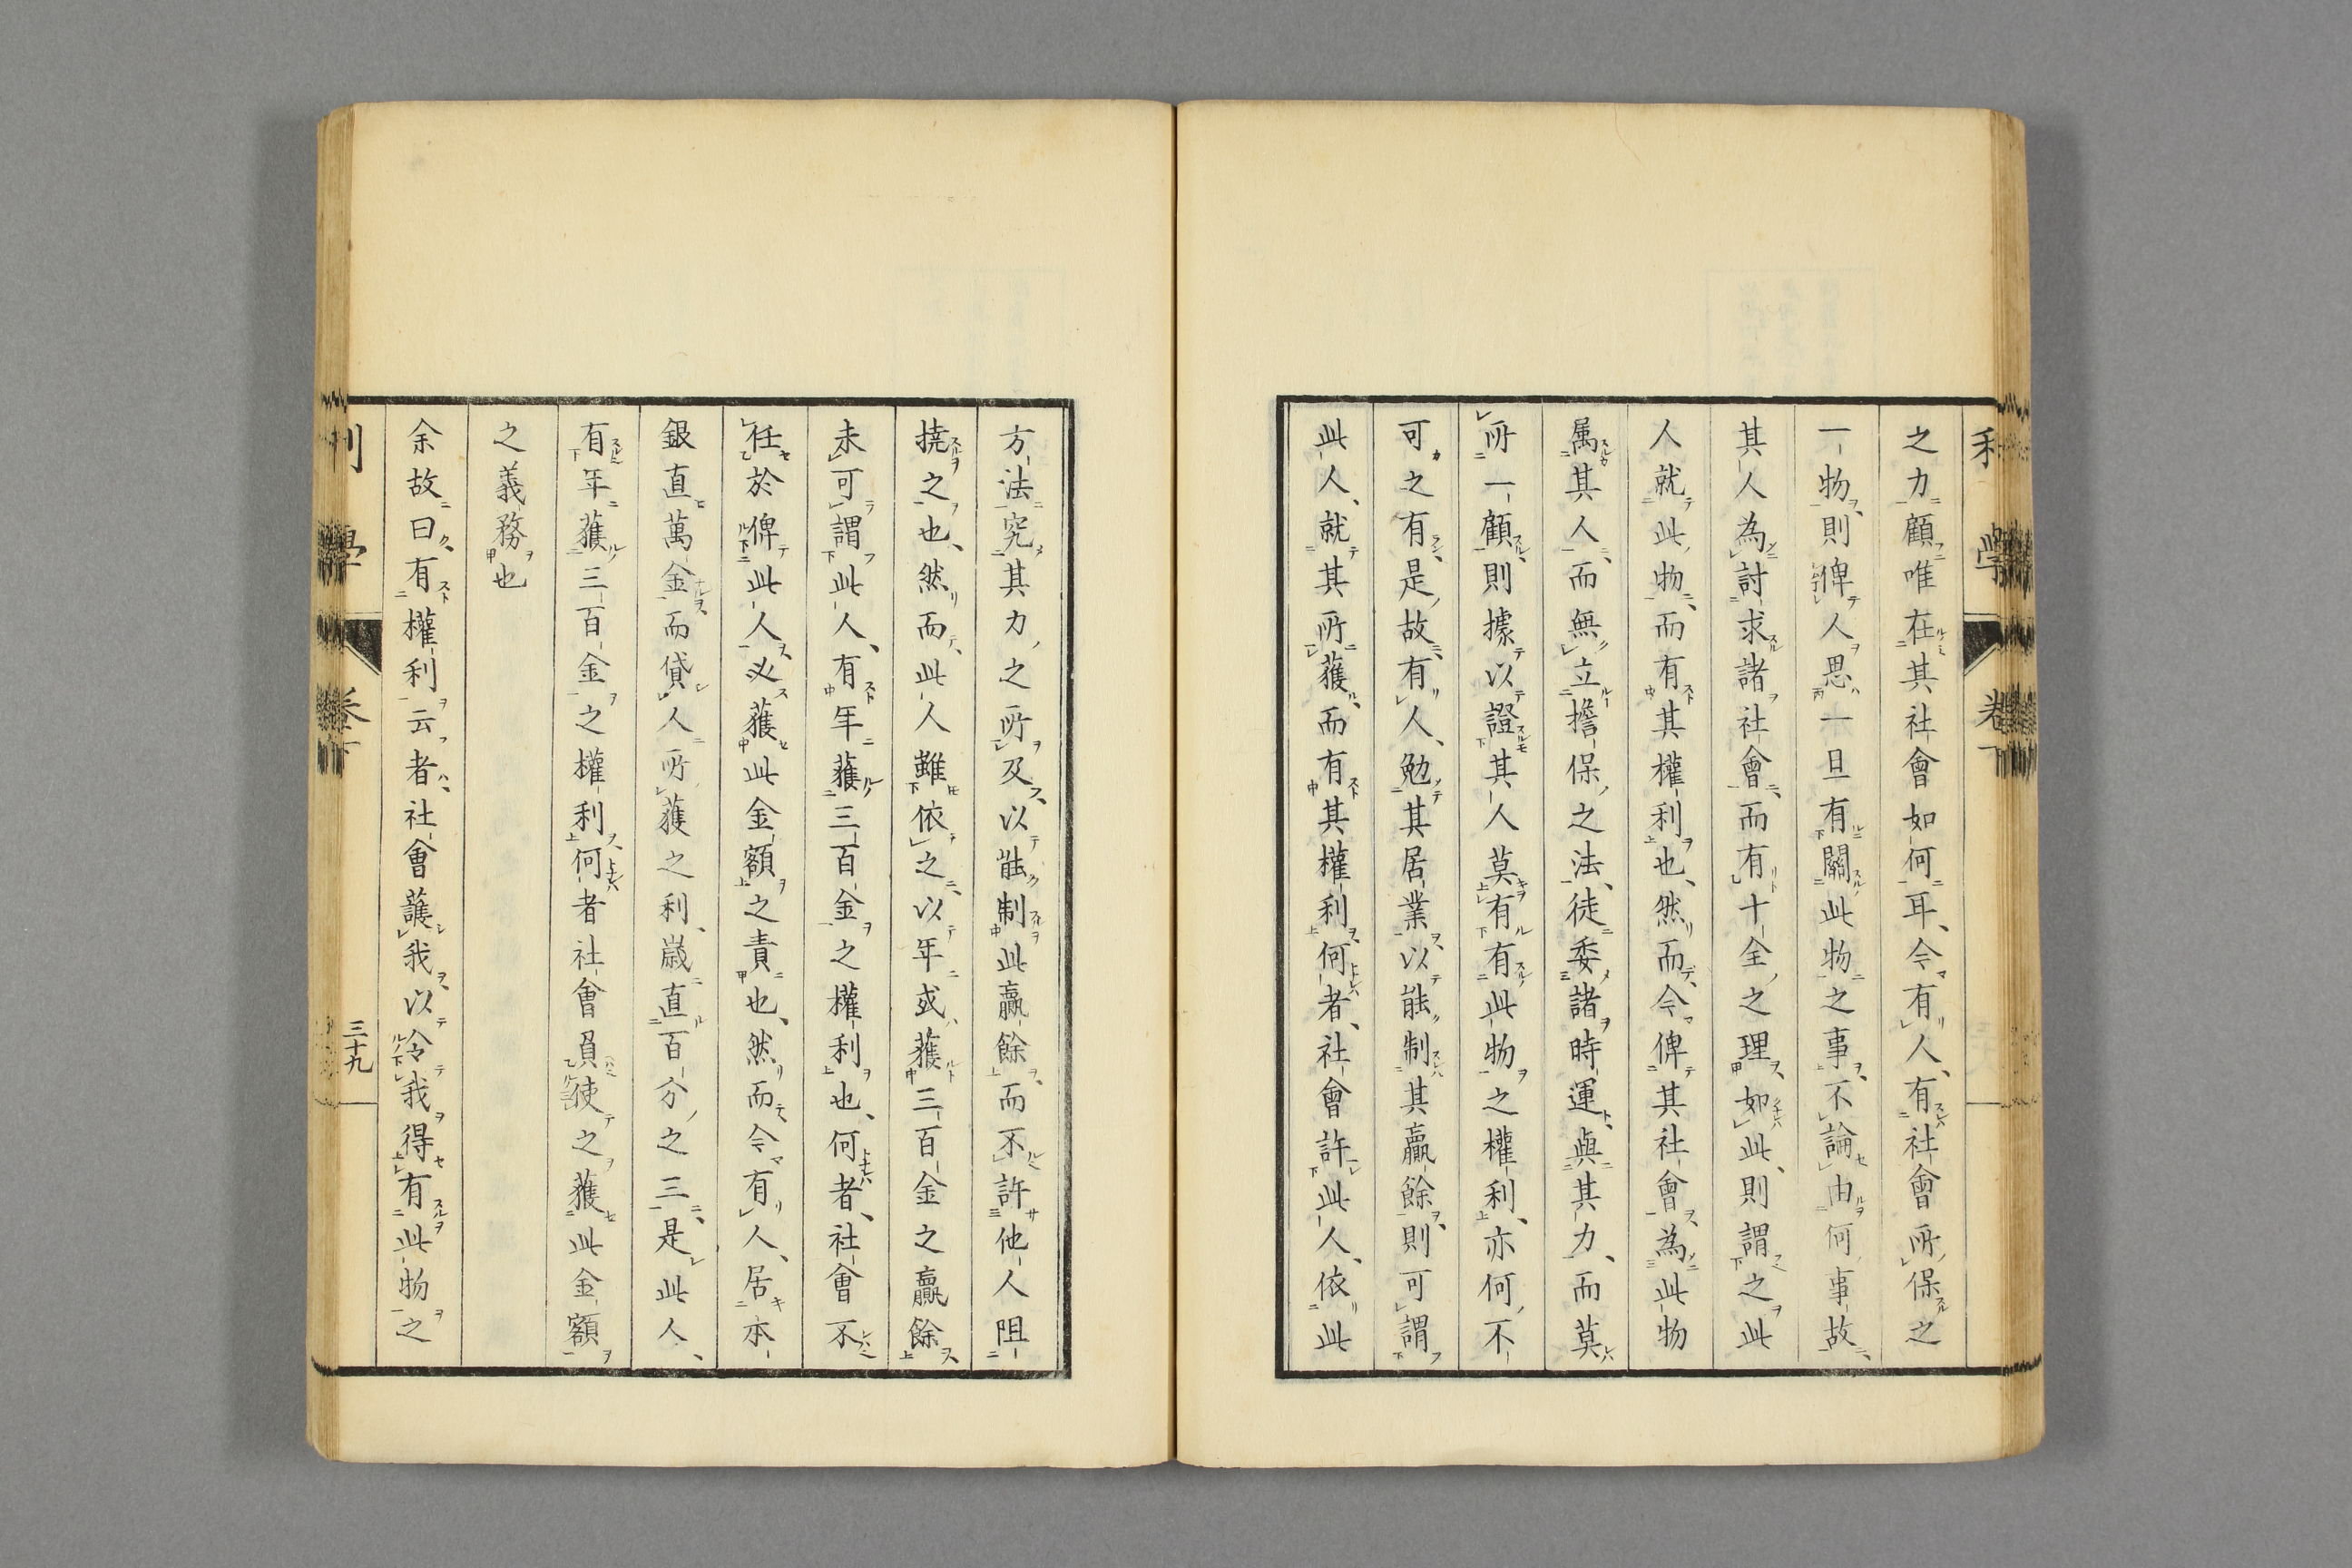 之力顧唯在其社會如何耳、今有人、有社會所保之
一物、則俾人思一旦有關此物之事、不論由何事故、
其人為討求諸社會、而有十全之理、如此、則謂之此
人就此物、而有其權利也、然而、今俾其社會、為此物
属其人、而無立擔保之法、徒委諸時運、與其力、而莫
所一顧、則據以證其人莫有有此物之權利、亦何不
可之有、是故、有人、勉其居業、以能制其贏餘、則可謂
此人、就其所獲、而有其權利、何者、社會許此人、依此
方法究其力之所及、以能制此贏餘、而不許他人阻
撓之也、然而、此人雖依之、以年或獲三百金之贏餘、
未可謂此人、有年獲三百金之權利也、何者、社會不
任於俾此人必獲此金額之責也、然而、今有人、居本
銀直萬金、而貸人所獲之利、歳直百分之三、是此人、
有年獲三百金之權利、何者社會負使之獲此金額
之義務也
余故曰、有權利云者、社會護我、以令我得有此物之
利學 卷下
利學 卷下
三十九